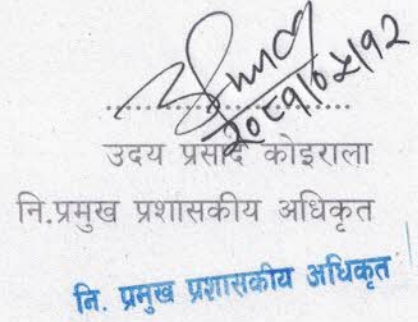 २०८१/०५/१२
उदय प्रसाद कोइराला
नि.प्रमुख प्रशासकीय अधिकृत
नि. प्रमुख प्रशासकीय अधिकृत